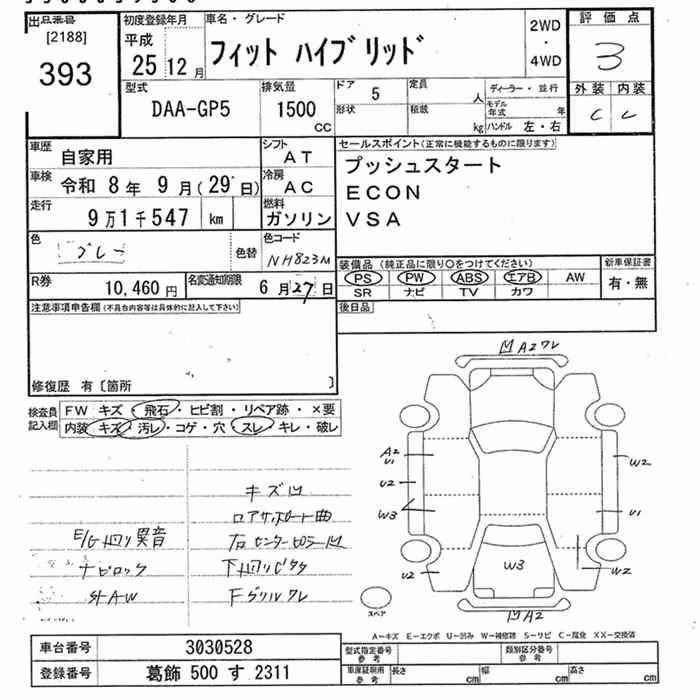 出品番号
[2188]
393
初度登録年月
平成
25 12月
車名・グレード
フィット ハイブリッド
2WD
・
4WD
評価点
3
外装 内装
C
型式
DAA-GP5
排気量
1500
CC
ドア
5
形状
定員
人
積載
kg
ディーラー・並行
モデル年式
年
ハンドル 左・右
車歴
自家用
シフト
AT
車検
令和 8年 9月(29日)
冷房
AC
走行
9万1千547 km
燃料
ガソリン
色
グレー
色替
色コード
NH823M
R券
10,460円
名変通知期限
6月27日
セールスポイント(正常に機能するものに限ります)
プッシュスタート
ECON
VSA
装備品(純正品に限り○をつけてください)
PS PW ABS エアB AW
SR ナビ TV カワ
新車保証書
有・無
後日品
注意事項申告欄(不具合内容等は具体的に記入して下さい)
修復歴 有〔箇所 〕
検査員記入欄
FW キズ・飛石・ヒビ割・リペア跡・×要
内装 キズ・汚レ・コゲ・穴・スレ・キレ・破レ
キズ凹
ロアサポート曲
E/G廻り異音
右センターピラー凹
ナビロック
下廻りサビ
社外AW
Fグリルワレ
A2ワレ
A2
U1
U2
W3
U2
W2
U1
W2
W3
A2
スペア
A-キズ E-エクボ U-凹み W-補修跡 S-サビ C-腐食 XX-交換済
車台番号
3030528
登録番号
葛飾 500 す 2311
型式指定番号
参考
類別区分番号
参考
車庫証明用
参考
長さ
cm
幅
cm
高さ
cm